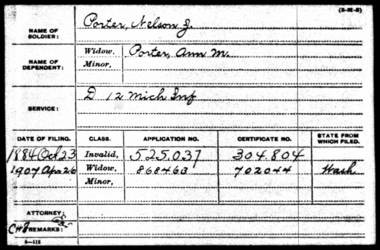 (3-22-6)
NAME OF SOLDIER: Porter, Nelson J.
NAME OF DEPENDENT: Widow, Porter, Ann M.
Minor,
SERVICE: D 12 Mich Inf
DATE OF FILING. CLASS. APPLICATION NO. CERTIFICATE NO. STATE FROM WHICH FILED.
1884 Oct 23 Invalid, 525.037 304.804
1907 Apr 26 Widow, 868463 702044 Wash
Minor,
ATTORNEY:
REMARKS: